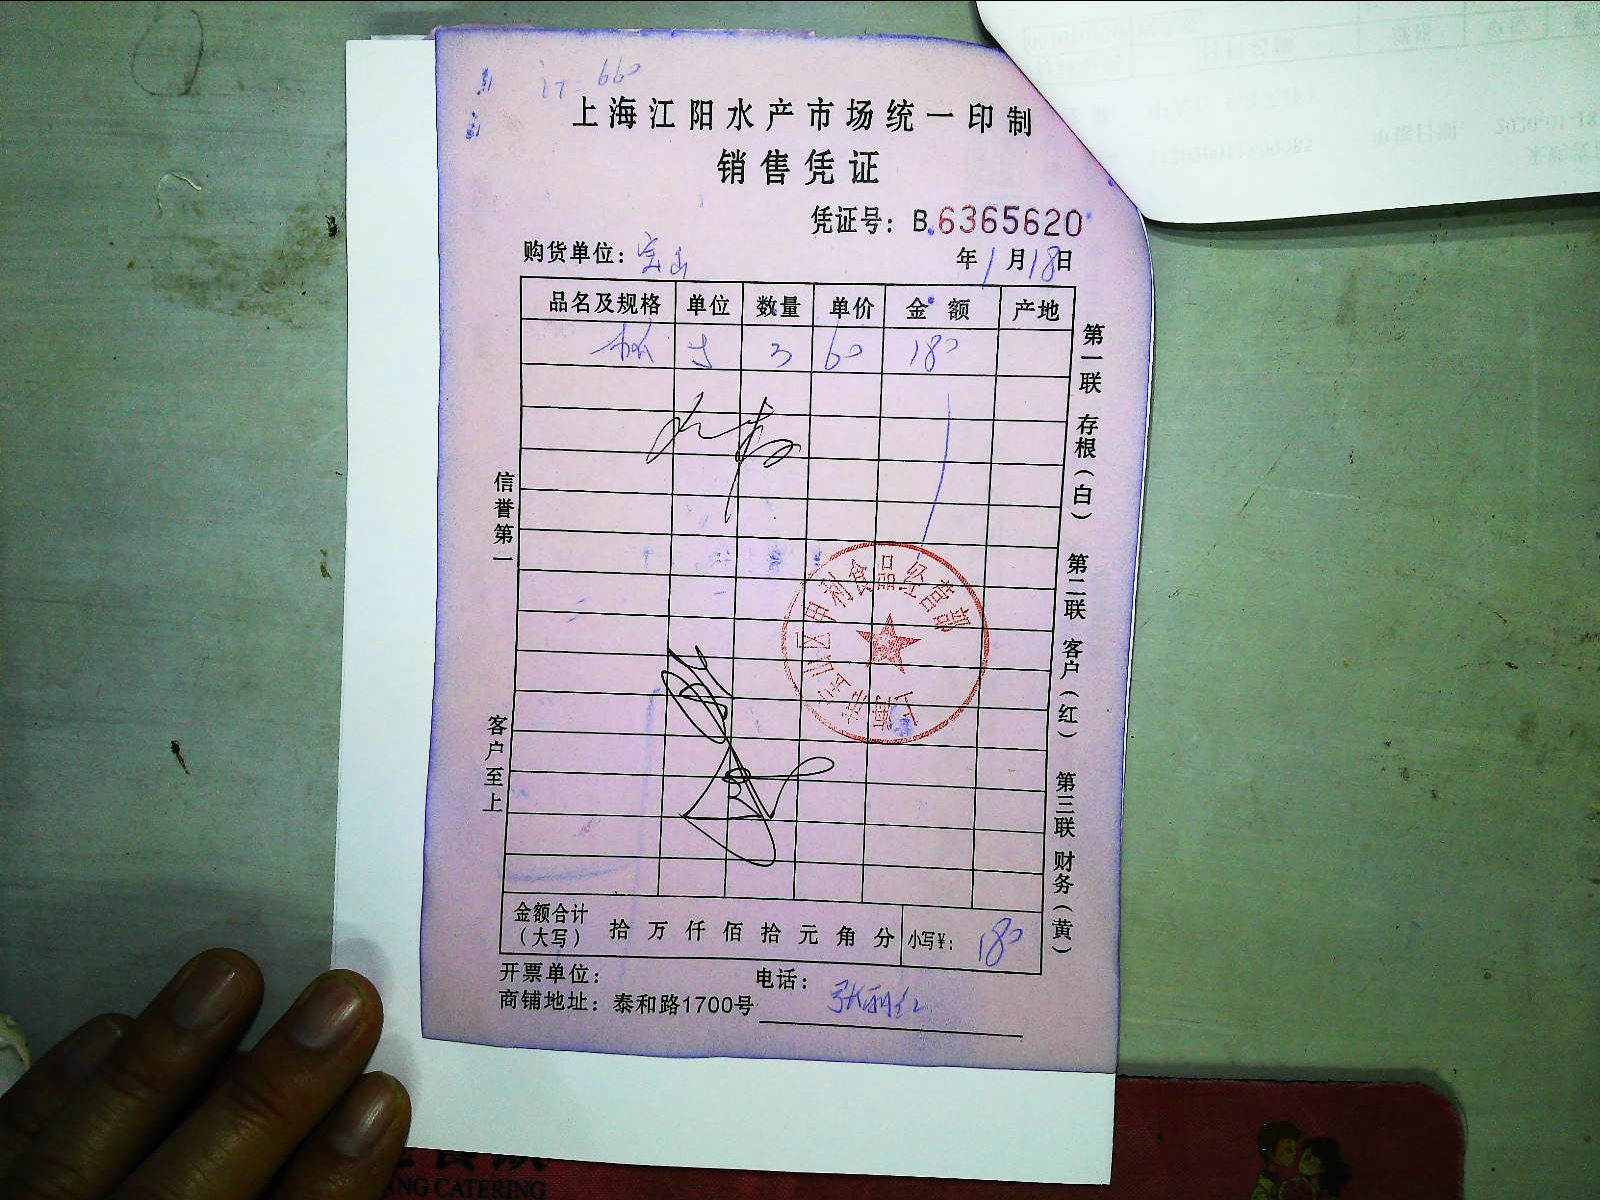 660
上海江阳水产市场统一印制
销售凭证
凭证号：B.6365620
购货单位：宝山 年1月18日
品名及规格 单位 数量 单价 金额 产地
3 60 180
信誉第一
客户至上
第一联 存根（白）
第二联 客户（红）
第三联 财务（黄）
上海市宝山区甲利食品经营部
金额合计（大写） 拾 万 仟 佰 拾 元 角 分 小写¥：180
开票单位： 电话：
商铺地址：泰和路1700号 张利红
ANG CATERING